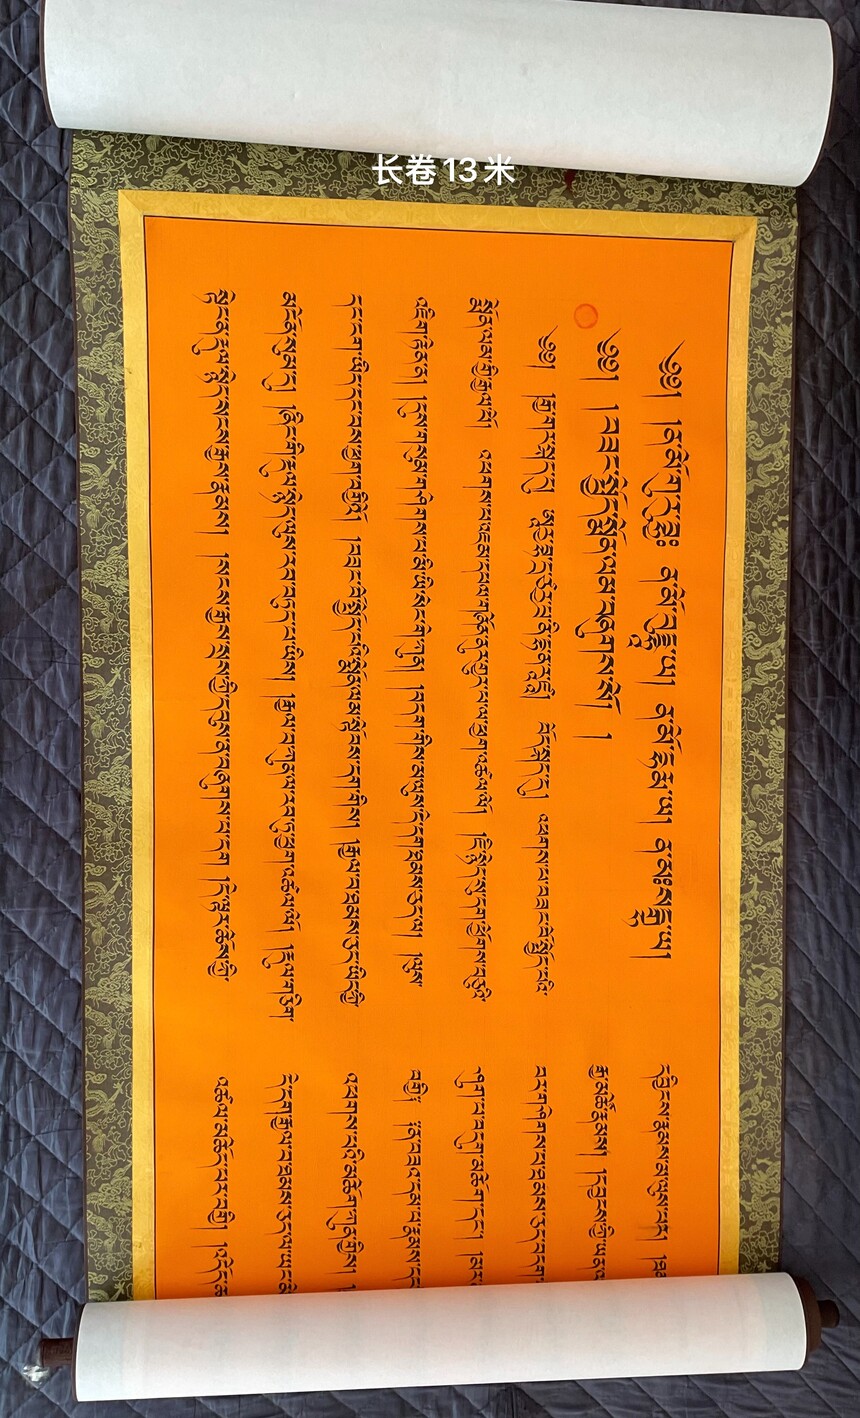 长卷13米
༄༅། །ན་མོ་གུ་རུ་བྷྱཿ ན་མོ་བུདྡྷཱ་ཡ། ན་མོ་དྷརྨཱ་ཡ། ན་མཿསངྒྷཱ་ཡ།
༄༅། །བཟང་སྤྱོད་སྨོན་ལམ་བཞུགས་སོ། །
༄༅། །རྒྱ་གར་སྐད་དུ། བོད་སྐད་དུ། འཕགས་པ་བཟང་པོ་སྤྱོད་པའི་
སྨོན་ལམ་གྱི་རྒྱལ་པོ། འཕགས་པ་འཇམ་དཔལ་གཞོན་ནུར་གྱུར་པ་ལ་ཕྱག་འཚལ་ལོ། །ཇི་སྙེད་སུ་དག་ཕྱོགས་བཅུའི་
འཇིག་རྟེན་ན། །དུས་གསུམ་གཤེགས་པ་མི་ཡི་སེང་གེ་ཀུན། །བདག་གིས་མ་ལུས་དེ་དག་ཐམས་ཅད་ལ། །ལུས་
དང་ངག་ཡིད་དང་བས་ཕྱག་བགྱིའོ། །བཟང་པོ་སྤྱོད་པའི་སྨོན་ལམ་སྟོབས་དག་གིས། །རྒྱལ་བ་ཐམས་ཅད་ཡིད་ཀྱི་
མངོན་སུམ་དུ། །ཞིང་གི་རྡུལ་སྙེད་ལུས་རབ་བཏུད་པ་ཡིས། །རྒྱལ་བ་ཀུན་ལ་རབ་ཏུ་ཕྱག་འཚལ་ལོ། །རྡུལ་གཅིག་
སྟེང་ན་རྡུལ་སྙེད་སངས་རྒྱས་རྣམས། །སངས་རྒྱས་སྲས་ཀྱི་དབུས་ན་བཞུགས་པ་དག །དེ་ལྟར་ཆོས་ཀྱི་
དབྱིངས་རྣམས་མ་ལུས་པར། །
རྒྱ་མཚོ་རྣམས། །དབྱངས་ཀྱི་ཡན་ལག་
བར་གཤེགས་པ་ཐམས་ཅད་བདག་
བྱུག་པ་གདུགས་མཆོག་དང༌། །
བགྱི། །ན་བཟའ་དམ་པ་རྣམས་དང་
འཕགས་པའི་མཆོག་ཀུན་གྱིས། །
དེ་དག་རྒྱལ་བ་ཐམས་ཅད་ལ་ཡང་
འཚལ་མཆོད་པར་བགྱི། །འདོད་